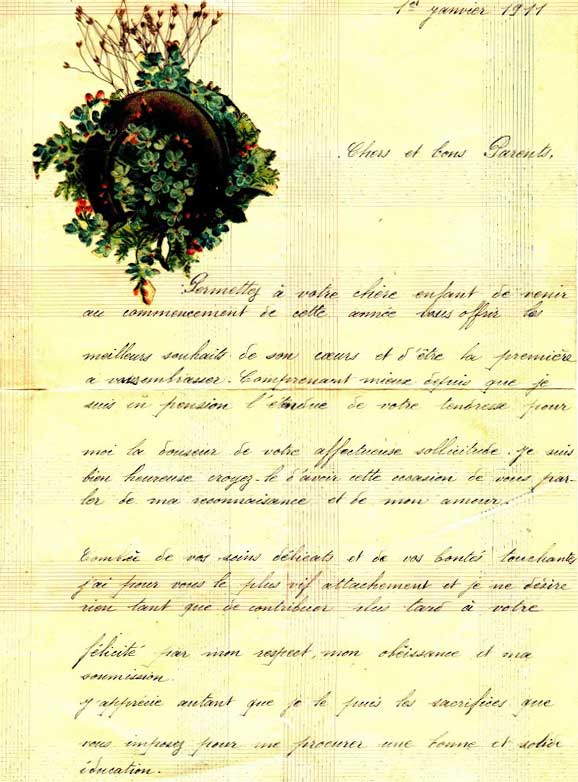 1er janvier 1911
Chers et bons Parents,
Permettez à votre chère enfant de venir
au commencement de cette année vous offrir les
meilleurs souhaits de son cœurs et d'être la première
a vous embrasser. Comprenant mieux depuis que je
suis en pension l'étendue de votre tendresse pour
moi la douceur de votre affectueuse sollicitude. je suis
bien heureuse croyez-le d'avoir cette occasion de vous par-
ler de ma reconnaisance et de mon amour.
de vos soins délicats et de vos bontés touchantes
j'ai pour vous le plus vif attachement et je ne désire
rien tant que de contribuer plus tard à votre
félicité par mon respect, mon obéissance et ma
soumission.
J'apprécie autant que je le puis les sacrifices que
vous imposez pour me procurer une bonne et solide
éducation.